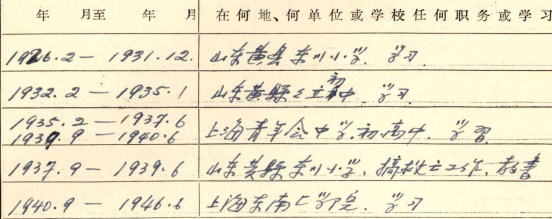 年 月至 年 月 在何地、何单位或学校任何职务或学习
1926.2—1931.12. 山东黄县东川小学. 学习
1932.2—1935.1 山东黄县县立初中. 学习
1935.2—1937.6
1939.9—1940.6 上海青年会中学.初.高中. 学習
1937.9—1939.6 山东黄縣东川小学、搞救亡工作、教書
1940.9—1946.6 上海东南医学院. 学习